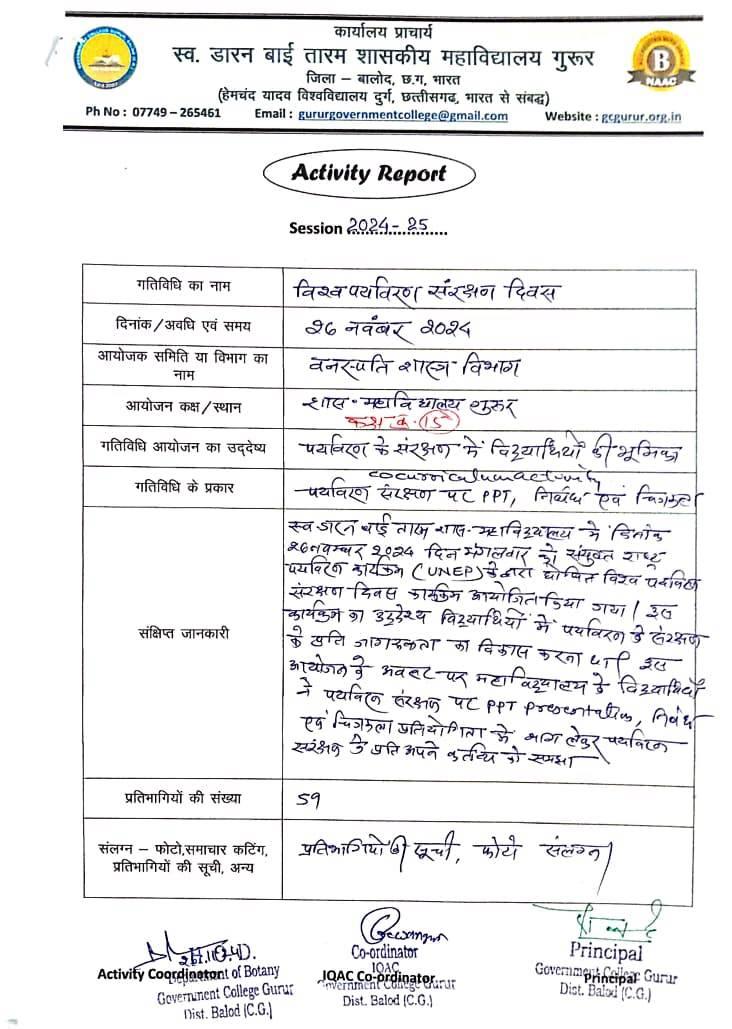 कार्यालय प्राचार्य
स्व. डारन बाई तारम शासकीय महाविद्यालय गुरूर
जिला – बालोद, छ.ग, भारत
(हेमचंद यादव विश्वविद्यालय दुर्ग, छत्तीसगढ, भारत से संबद्ध)
B
NAAC
Ph No : 07749 – 265461 Email : gururgovernmentcollege@gmail.com Website : gcgurur.org.in
Activity Report
Session 2024-25
गतिविधि का नाम विश्व पर्यावरण संरक्षण दिवस
दिनांक/अवधि एवं समय 26 नवंबर 2024
आयोजक समिति या विभाग का
नाम वनस्पति शास्त्र विभाग
आयोजन कक्ष/स्थान शास. महाविद्यालय गुरुर
कक्ष क्र. 15
गतिविधि आयोजन का उद्देष्य पर्यावरण के संरक्षण में विद्यार्थियों की भूमिका
cocurriculum activity
गतिविधि के प्रकार पर्यावरण संरक्षण पर PPT, निबंध एवं चित्रकला
संक्षिप्त जानकारी
स्व डारन बाई तारम शास. महाविद्यालय में दिनांक
26 नवम्बर 2024 दिन मंगलवार को संयुक्त राष्ट्र
पर्यावरण कार्यक्रम (UNEP) के द्वारा घोषित विश्व पर्यावरण
संरक्षण दिवस कार्यक्रम आयोजित किया गया। इस
कार्यक्रम का उद्देश्य विद्यार्थियों में पर्यावरण के संरक्षण
के प्रति जागरूकता का विकास करना था। इस
आयोजन के अवसर पर महाविद्यालय के विद्यार्थियों
ने पर्यावरण संरक्षण पर PPT presentation, निबंध
एवं चित्रकला प्रतियोगिता में भाग लेकर पर्यावरण
संरक्षण के प्रति अपने कर्तव्य को समझा
प्रतिभागियों की संख्या 59
संलग्न – फोटो,समाचार कटिंग,
प्रतिभागियों की सूची, अन्य प्रतिभागियों की सूची, फोटो संलग्न
Activity Coordinator
Department of Botany
Government College Gurur
Dist. Balod (C.G.)
Co-ordinator
IQAC
IQAC Co-ordinator
Government College Gurur
Dist. Balod (C.G.)
Principal
Government College Gurur
Principal
Dist. Balod (C.G.)